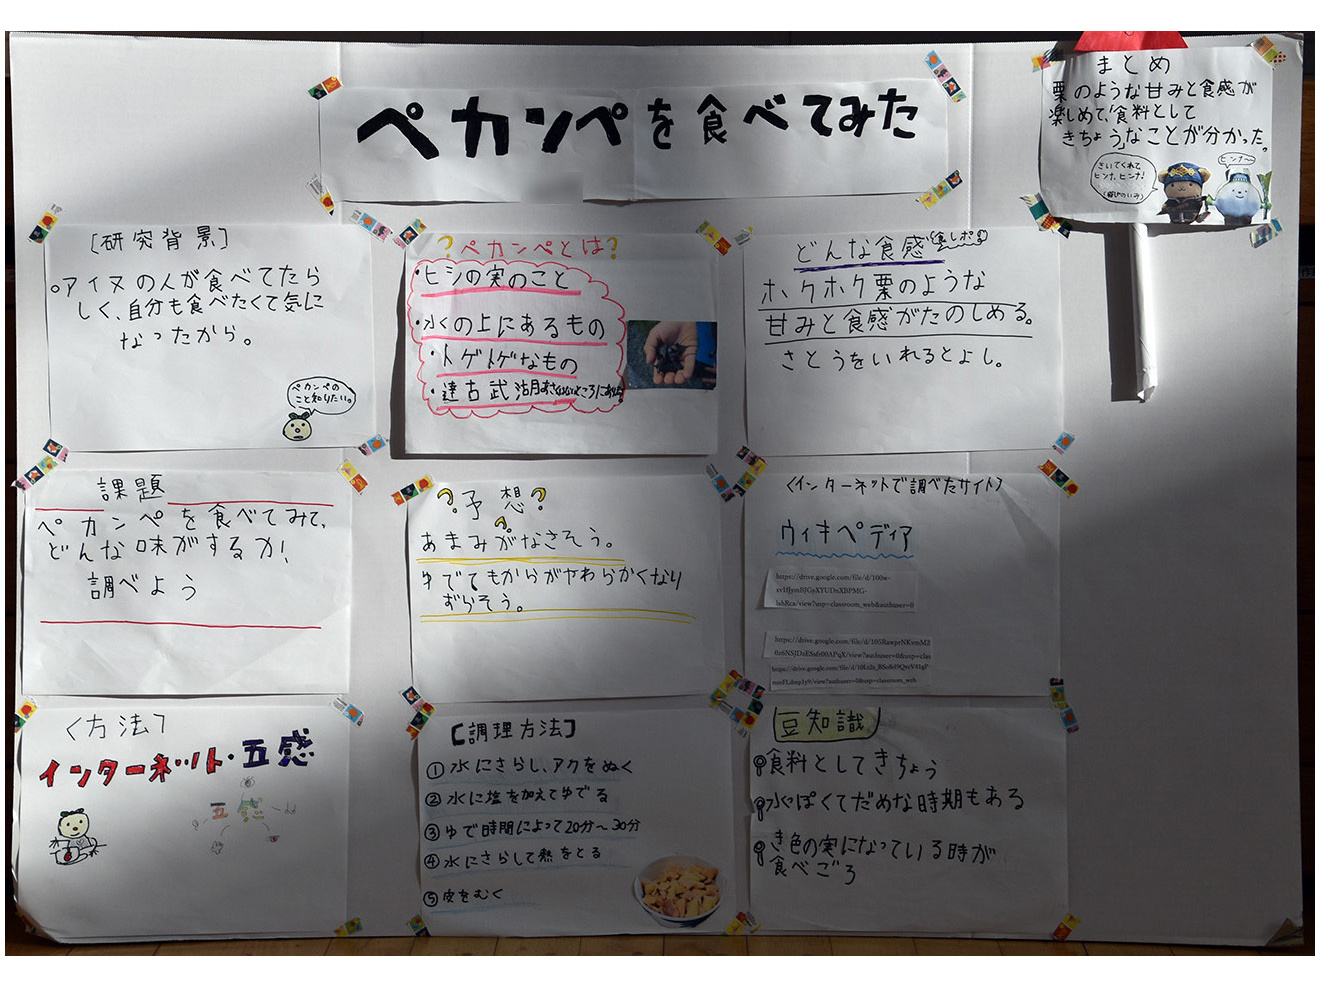 ペカンペを食べてみた
まとめ
栗のような甘みと食感が
楽しめて、食料として
きちょうなことが分かった。
きいてくれて
ヒンナ、ヒンナ!
ヒンナ〜
[研究背景]
アイヌの人が食べてたら
しく、自分も食べたくて気に
なったから。
ペカンペの
こと知りたい。
?ペカンペとは?
・ヒシの実のこと
・水の上にあるもの
・トゲトゲなもの
・達古武沼
どんな食感(食レポ)
ホクホク栗のような
甘みと食感がたのしめる。
さとうをいれるとよし。
課題
ペカンペを食べてみて、
どんな味がするか!
調べよう
?予想?
あまみがなさそう。
ゆでてもからがやわらかくなり
ずらそう。
<インターネットで調べたサイト>
ウィキペディア
https://drive.google.com/file/d/100w-
xv1fJymBJGsXYUDnXBPMG-
lshRca/view?usp=classroom_web&authuser=0
https://drive.google.com/file/d/105RawprNKvmM2
0r6NSJDzESsfr00APqX/view?authuser=0&usp=clas
https://drive.google.com/file/d/10Ln2s_BSo8el9QreV41gP
meeFLdmp1y9/view?authuser=0&usp=classroom_web
<方法>
インターネット・五感
五感
[調理方法]
①水にさらし、アクをぬく
②水に塩を加えてゆでる
③ゆで時間によって20分〜30分
④水にさらして熱をとる
⑤皮をむく
豆知識
食料としてきちょう
水ぽくてだめな時期もある
き色の実になっている時が
食べごろ